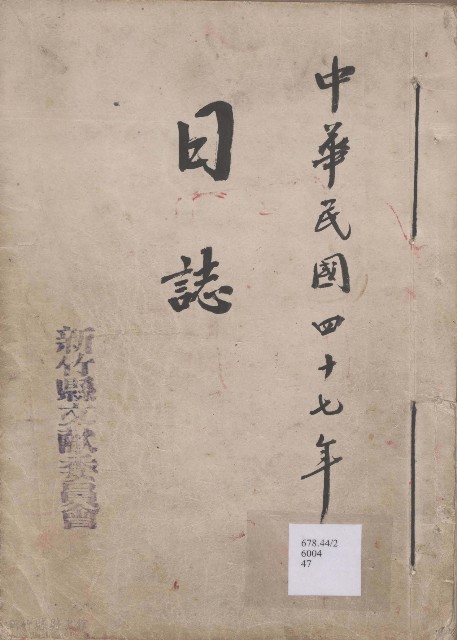 中華民國四十七年
日誌
新竹縣文献委員會
678.44/2
6004
47